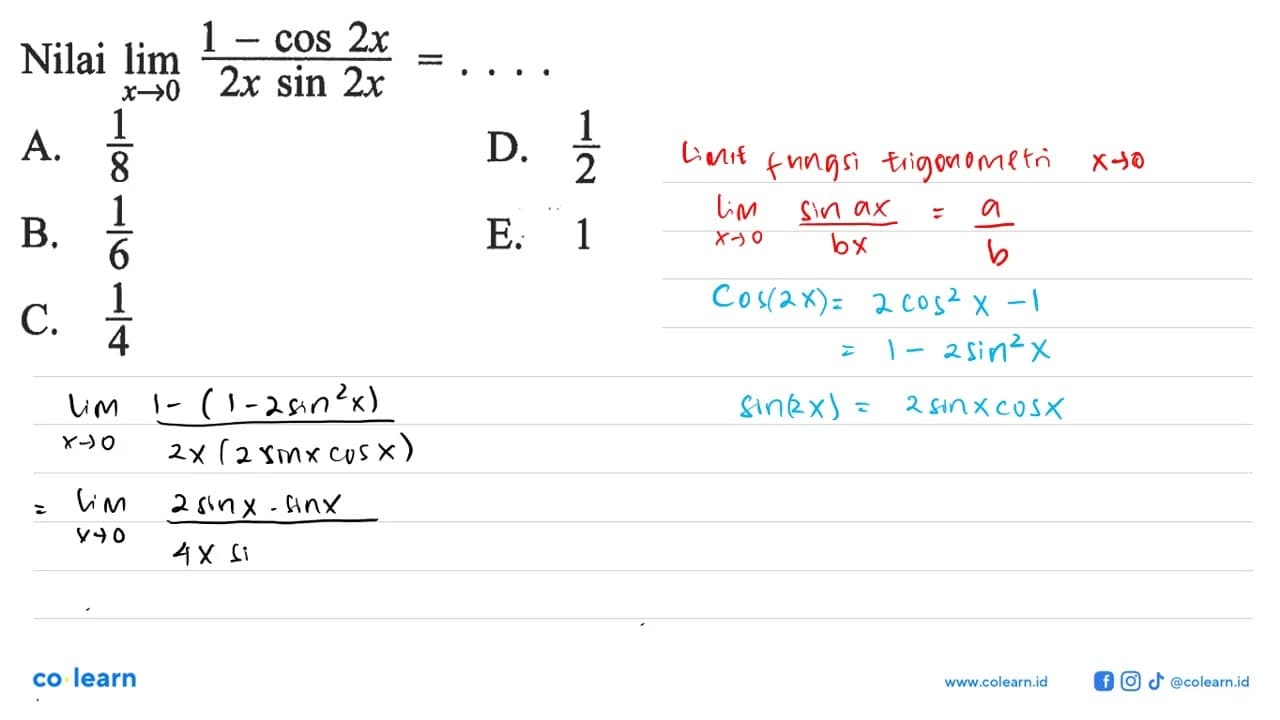 Nilai lim x→0 (1 - cos 2x)/(2x sin 2x) = . . . .
A. 1/8
B. 1/6
C. 1/4
D. 1/2
E. 1
Limit fungsi trigonometri x→0
lim x→0 sin ax / bx = a/b
Cos(2x) = 2 cos² x - 1
= 1 - 2 sin² x
sin(2x) = 2 sin x cos x
lim x→0 1 - (1 - 2 sin² x) / 2x (2 sin x cos x)
= lim x→0 2 sin x · sin x / 4x si
co learn
www.colearn.id
@colearn.id